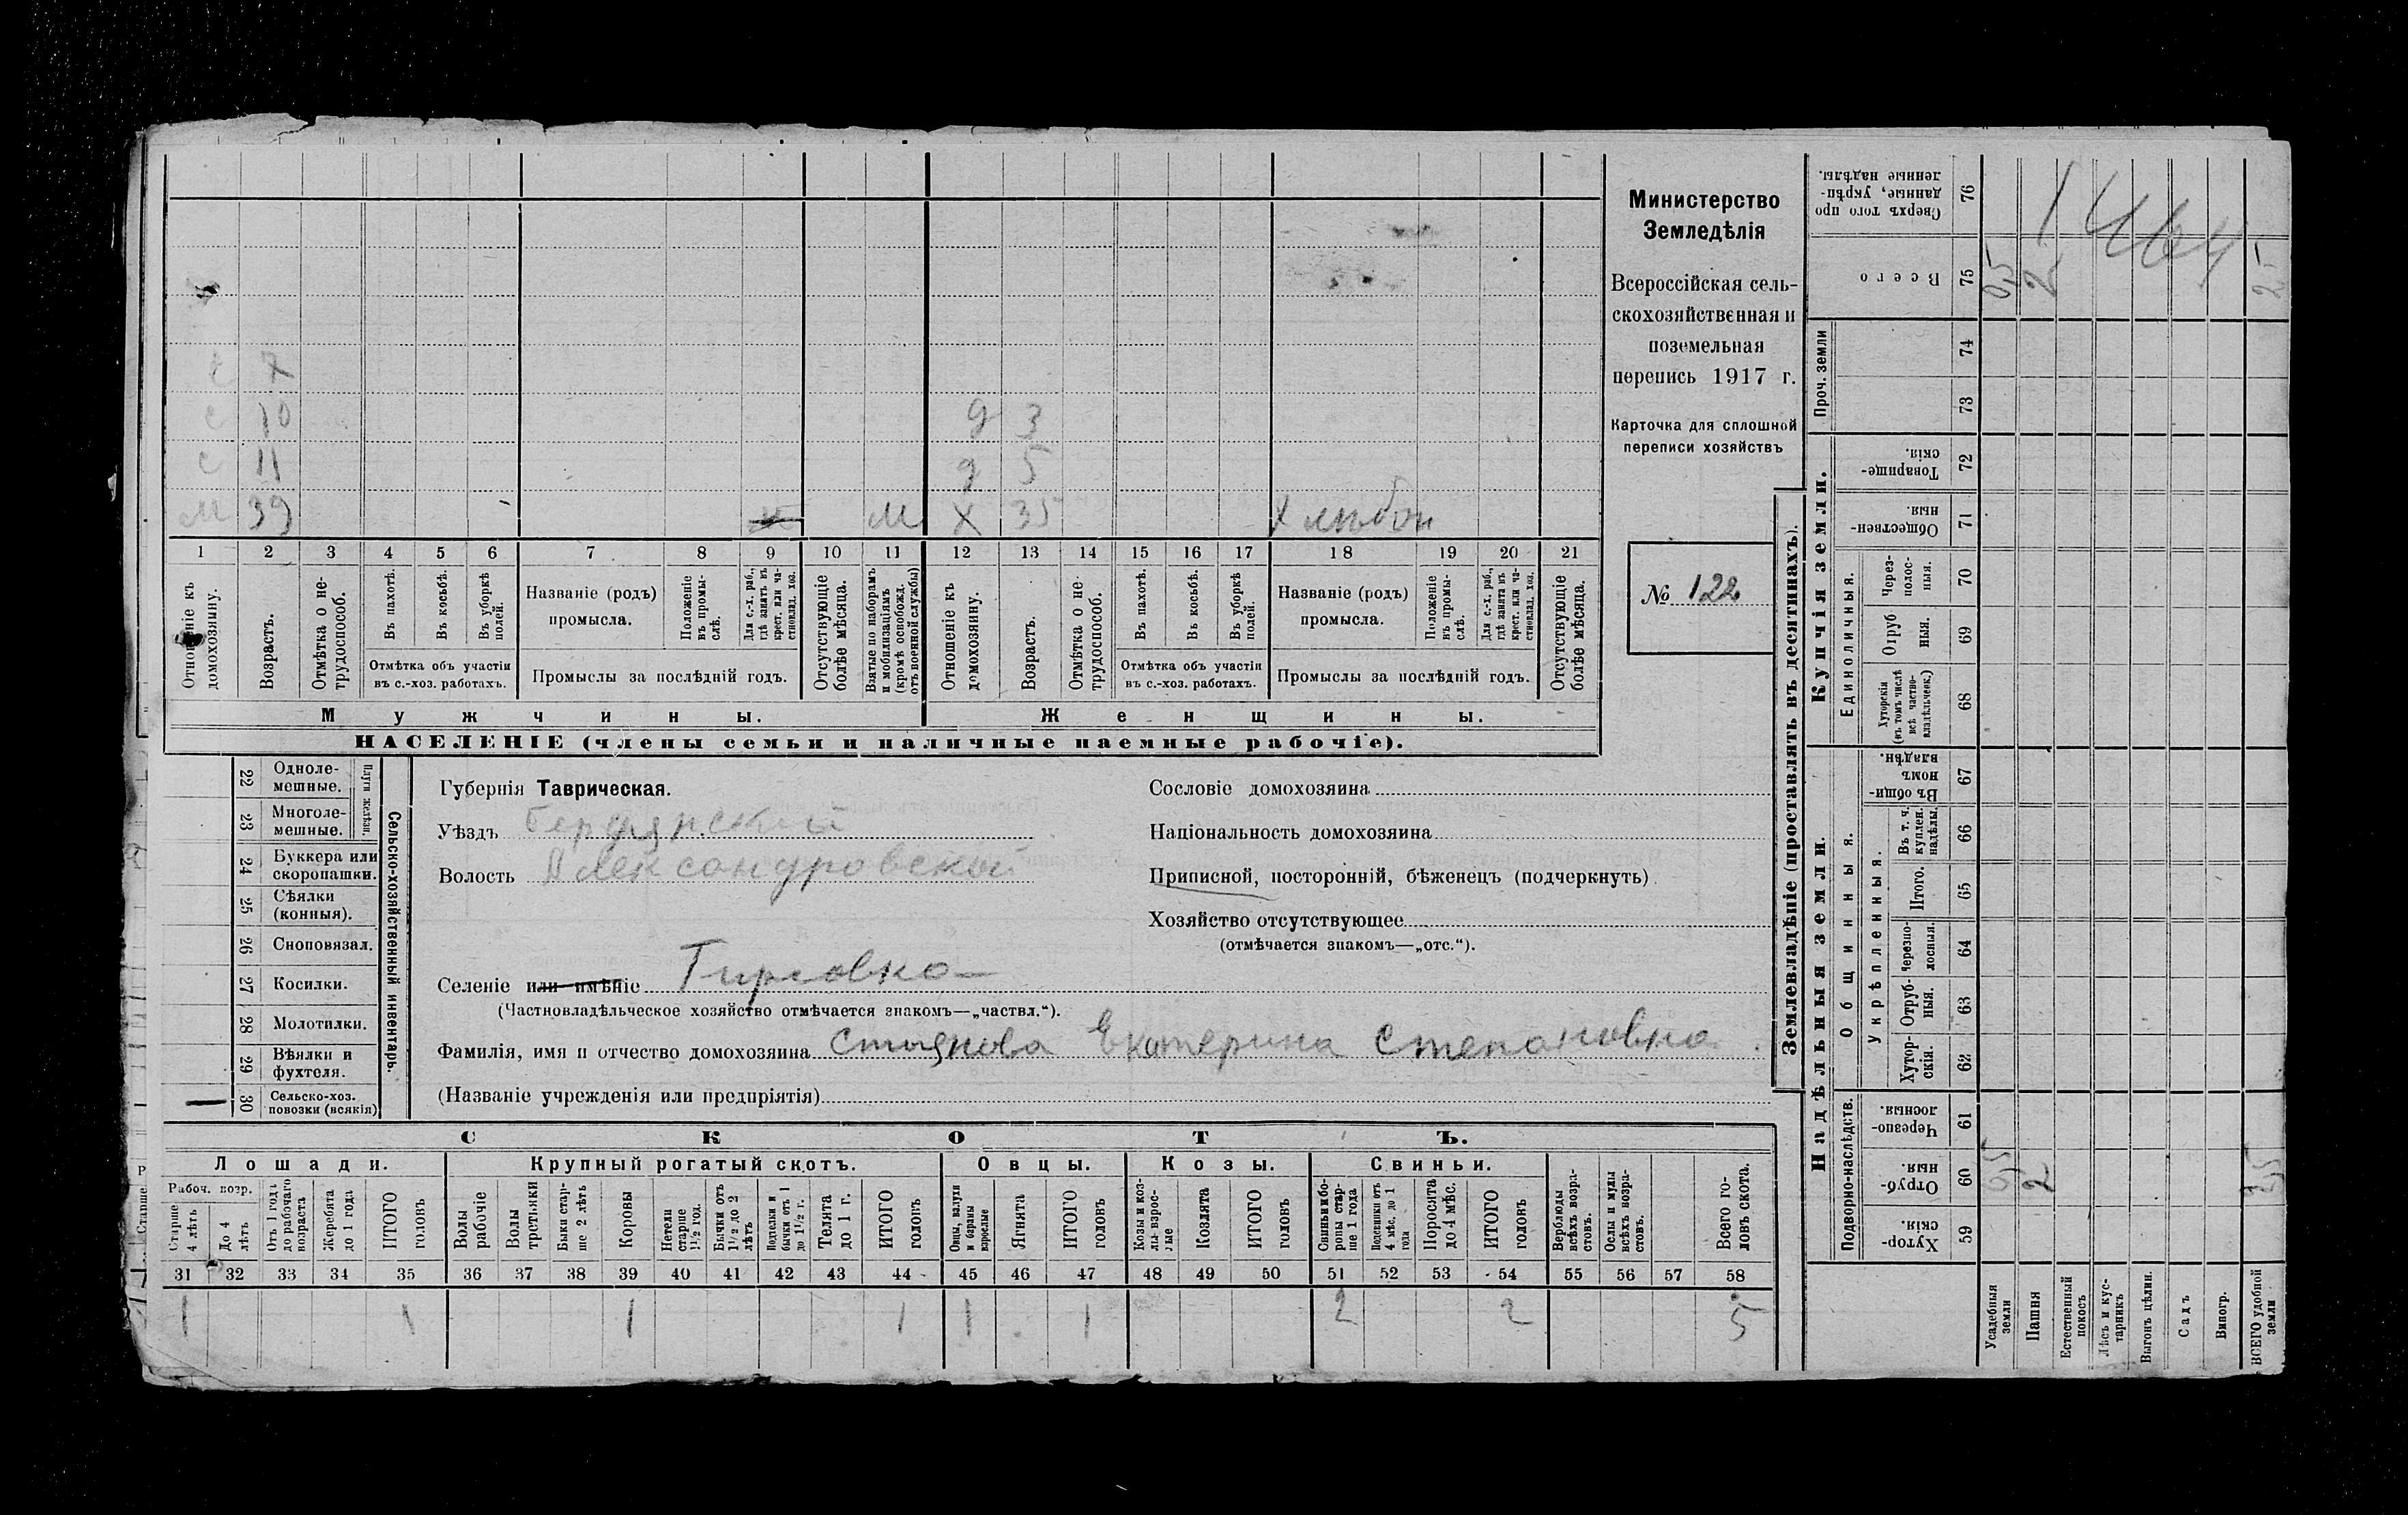 Министерство
Земледѣлія
Всероссійская сель-
скохозяйственная и
поземельная
перепись 1917 г.
Карточка для сплошной
переписи хозяйствъ
№ 122
с 7
с 10 д 3
с 11 д 5
м 39 м м х 35
1 2 3 4 5 6 7 8 9 10 11 12 13 14 15 16 17 18 19 20 21
Отношеніе къ домохозяину.
Возрастъ.
Отмѣтка о не-трудоспособ.
Въ пахотѣ.
Въ косьбѣ.
Въ уборкѣ полей.
Отмѣтка объ участіи въ с.-хоз. работахъ.
Названіе (родъ) промысла.
Положеніе въ промы-слѣ.
Для с.-х. раб., гдѣ занятъ въ крест. или ча-стновлад. хоз.
Промыслы за послѣдній годъ.
Отсутствующіе болѣе мѣсяца.
Взятые по наборамъ и мобилизаціямъ (кромѣ освобожд. отъ военной службы)
Отношеніе къ домохозяину.
Возрастъ.
Отмѣтка о не трудоспособ.
Въ пахотѣ.
Въ косьбѣ.
Въ уборкѣ полей.
Отмѣтка объ участіи въ с.-хоз. работахъ.
Названіе (родъ) промысла.
Положеніе въ промы-слѣ.
Для с.-х. раб., гдѣ занята въ крест. или ча-стновлад. хоз.
Промыслы за послѣдній годъ.
Отсутствующіе болѣе мѣсяца.
Мужчины. Женщины.
НАСЕЛЕНІЕ (члены семьи и наличные наемные рабочіе).
Сельско-хозяйственный инвентарь.
Плуги желѣзн.
22 Одноле-мешные.
23 Многоле-мешные.
24 Буккера или скоропашки.
25 Сѣялки (конныя).
26 Сноповязал.
27 Косилки.
28 Молотилки.
29 Вѣялки и фухтеля.
30 Сельско-хоз. повозки (всякія)
Губернія Таврическая.
Уѣздъ Бердянский
Волость Александровской
Селеніе или имѣніе
(Частновладѣльческое хозяйство отмѣчается знакомъ—„частвл.“).
Фамилія, имя и отчество домохозяина Екатерина Степановна
(Названіе учрежденія или предпріятія)
Сословіе домохозяина
Національность домохозяина
Приписной, посторонній, бѣженецъ (подчеркнуть)
Хозяйство отсутствующее
(отмѣчается знакомъ—„отс.“).
СКОТЪ.
Лошади. Крупный рогатый скотъ. Овцы. Козы. Свиньи.
Рабоч. возр.
Старше 4 лѣтъ
До 4 лѣтъ
Отъ 1 года до рабочаго возраста
Жеребята до 1 года
ИТОГО головъ
Волы рабочіе
Волы третьяки
Быки стар-ше 2 лѣтъ
Коровы
Нетели старше 1½ год.
Бычки отъ 1½ до 2 лѣтъ
Подтелки и бычки отъ 1 до 1½ г.
Телята до 1 г.
ИТОГО головъ
Овцы, валухи и бараны взрослые
Ягнята
ИТОГО головъ
Козы и коз-лы взрос-лые
Козлята
ИТОГО головъ
Свиньи и бо-ровы стар-ше 1 года
Подсвинки отъ 4 мѣс. до 1 года
Поросята до 4 мѣс.
ИТОГО головъ
Верблюды всѣхъ возра-стовъ.
Ослы и мулы всѣхъ возра-стовъ.
Всего го-ловъ скота.
31 32 33 34 35 36 37 38 39 40 41 42 43 44 45 46 47 48 49 50 51 52 53 54 55 56 57 58
1 1 1 1 1 1 2 2 5
Землевладѣніе (проставлять въ десятинахъ).
Надѣльныя земли. Купчія земли. Проч. земли
Подворно-наслѣдств.
Общинныя.
Укрѣпленныя.
Единоличныя.
59 Хутор-скія.
60 Отруб-ныя.
61 Черезпо-лосныя.
62 Хутор-скія.
63 Отруб-ныя.
64 Черезпо-лосныя.
65 Итого.
66 Въ т. ч. куплен. надѣлы.
67 Въ общи-номъ владѣн.
68 Хуторскія (въ томъ числѣ всѣ частно-владѣльчек.)
69 Отруб ныя.
70 Через-полос-ныя.
71 Обществен-ныя.
72 Товарище-скія.
73
74
75 Всего
76 Сверхъ того про данные, укрѣп-ленные надѣлы.
Усадебныя земли
Пашня
Естественный покосъ
Лѣсъ и кус-тарникъ
Выгонъ цѣлин.
Садъ
Виногр.
ВСЕГО удобной земли
05 2 25
05 2 25
1464